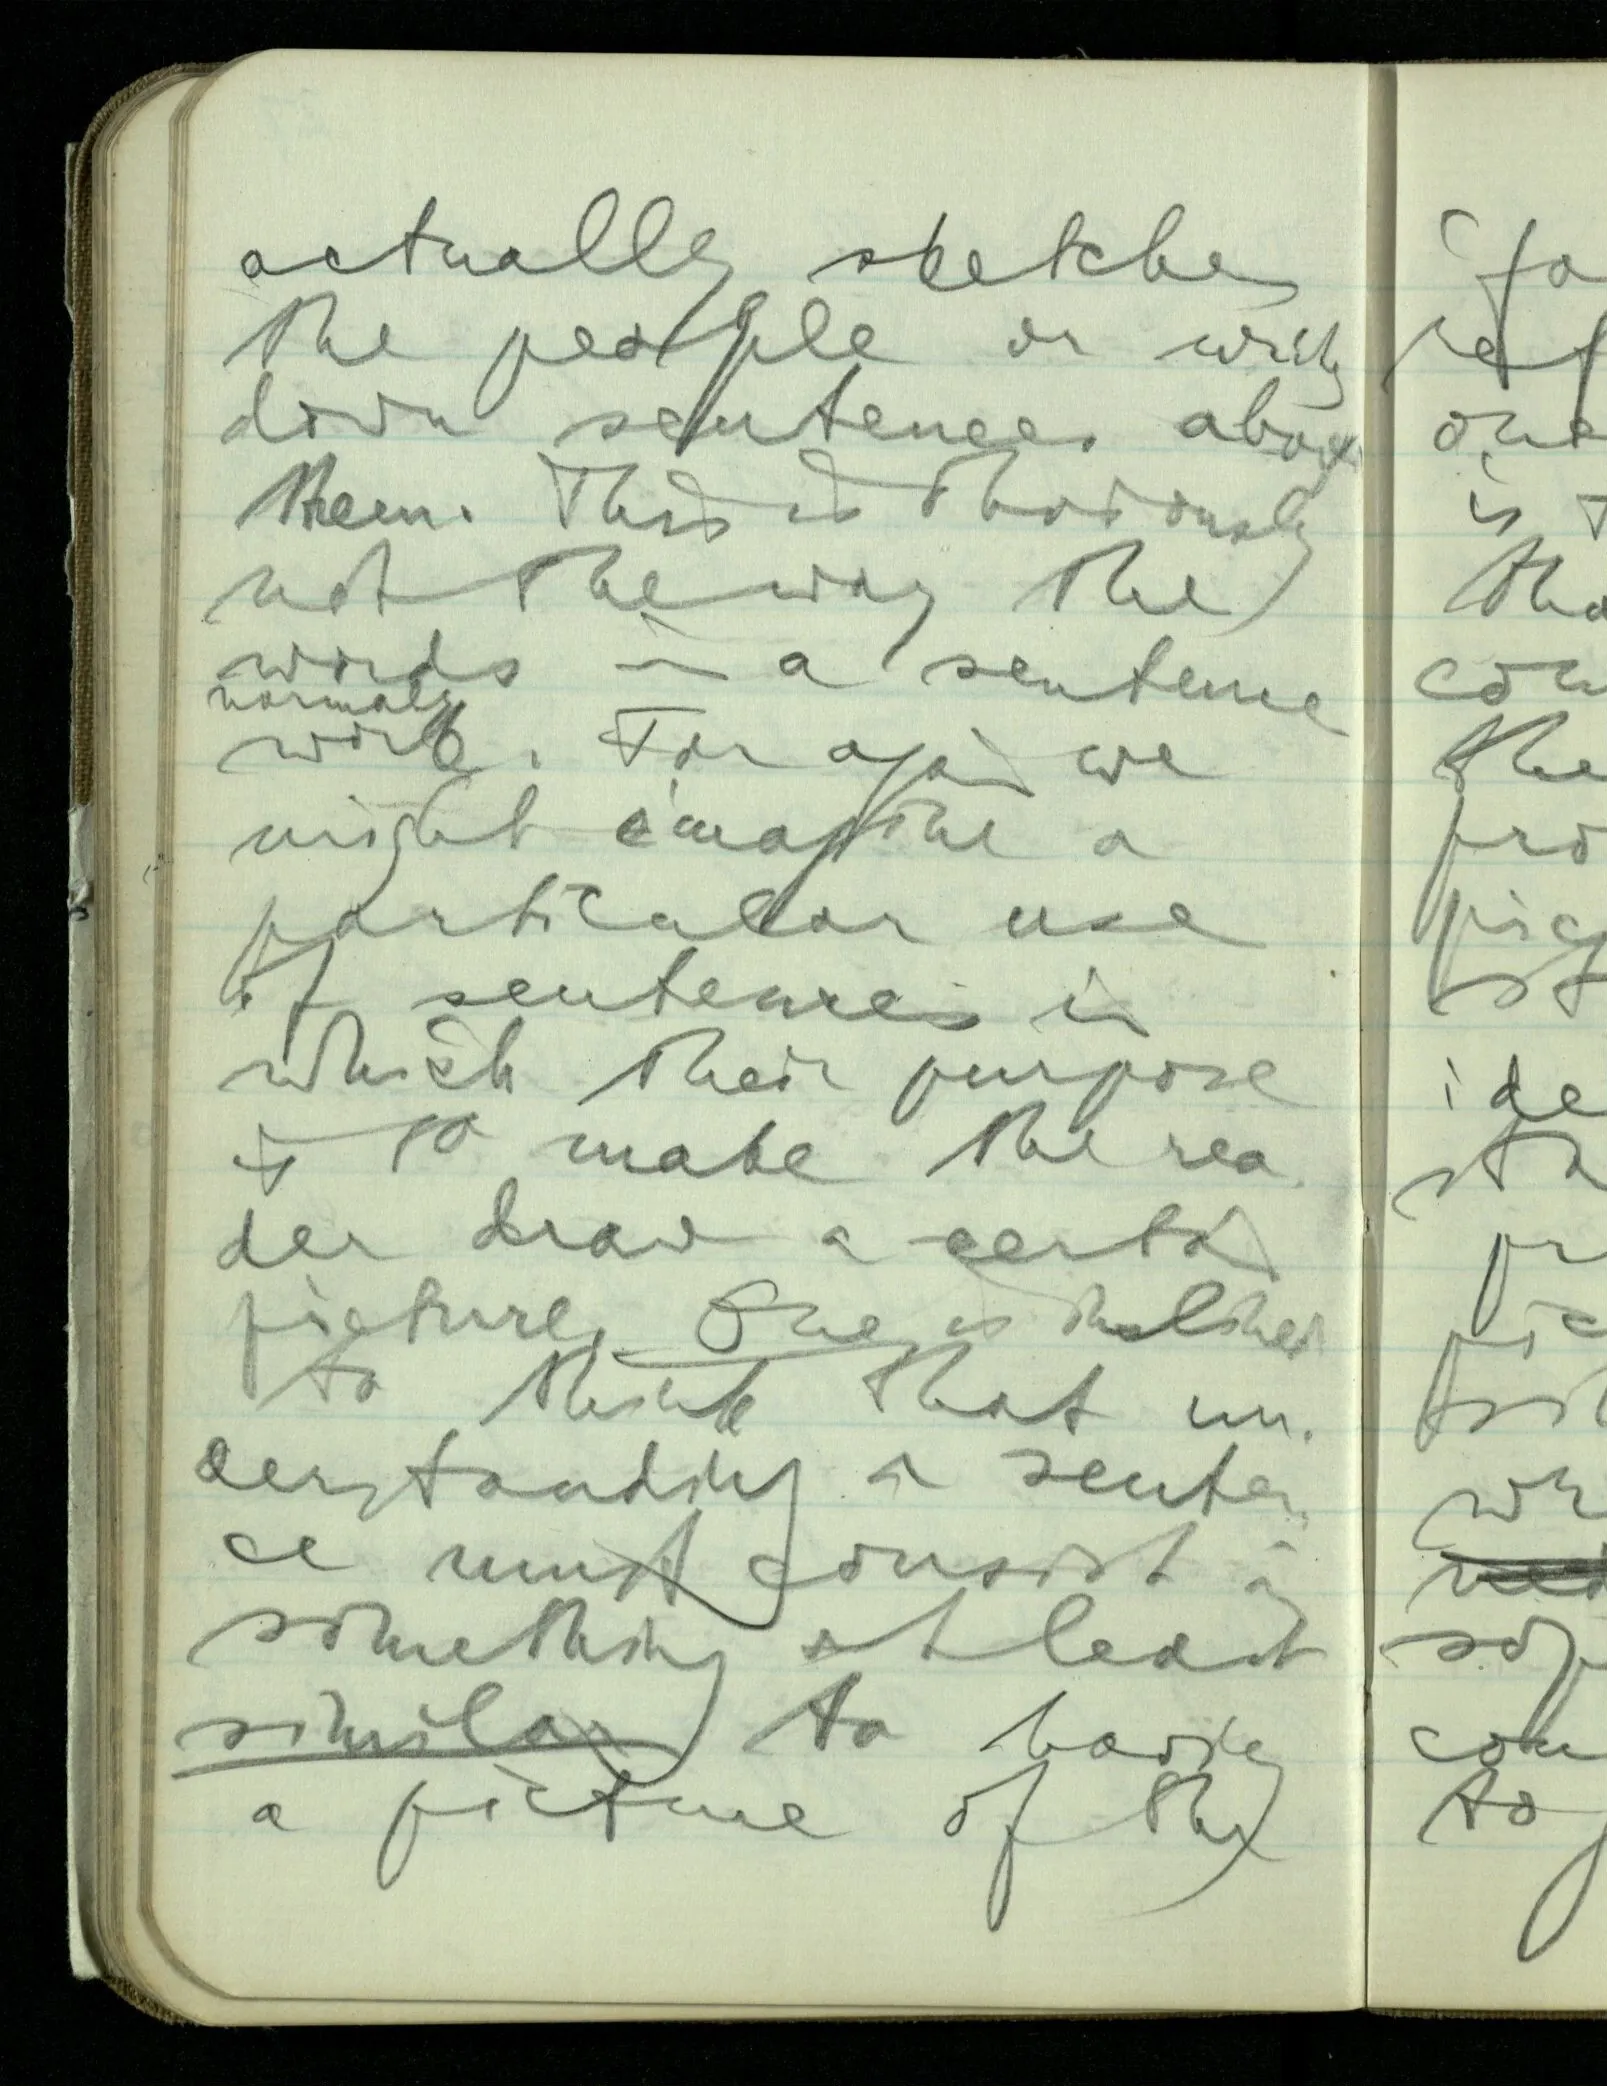 actually sketches
the people or writes
down sentences about
them. This is obviously
not the way the
words in a sentence
normally
work. For again we
might imagine a
particular use
of sentences in
which their purpose
is to make the rea
der draw a certain
picture. One is inclined
to think that un.
derstanding a senten
ce must consist in
something at least
similar to having
a picture of the